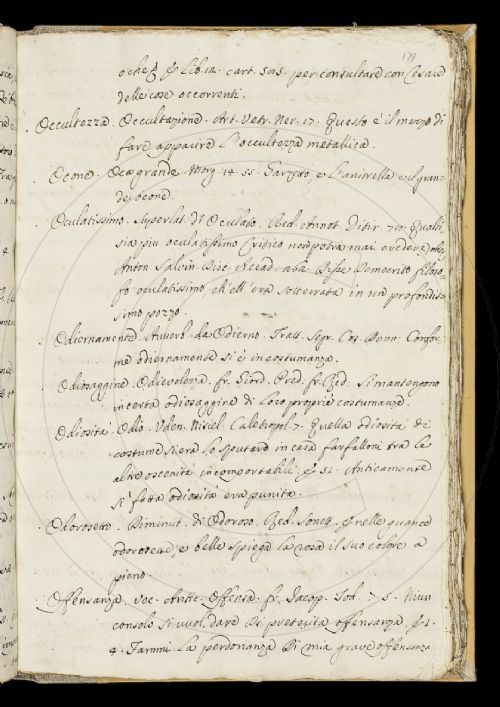 171
lib. 12. cart. 505. per consultare con Cesare
delle cose occorrenti.
Occultezza. Occultazione. Art. Vetr. Ner. 17. Questo è il mezzo di
fare apparire l'occultezza metallica.
Ocone. Oca grande. Morg. 14. 55. Garzetto, e l'anitrella e il gran-
de ocone.
Oculatissimo. Superlat. di Oculato. Red. Annot. Ditir. Qualsi-
sia più oculatissimo Critico non potrà mai vedere
Anton Salvin. Disc. Accad. Disse Democrito filoso-
fo oculatissimo, ch'ell'era sotterrata in un profondis-
simo pozzo.
Odiernamente. Avverb. da Odierno. Tratt. Segr. Cos. Donn. Confor-
me odiernamente si è in costumanza.
Odiosaggine. Odievolezza. fr. Giord. Pred. fr. Red. Si mantengono
in certa odiosaggine di loro proprie costumanze.
Odiosità. Odio. Uden. Nisiel. 7. Quella odiosità di
costume s'era lo sputare in casa farfalloni tra le
altre oscenità incomportabili. 51. Anticamente
sì fatta odiosità era punita.
Odorosetto. Diminut. di Odoroso. Red. Sonett. nelle guance
odorosette, e belle spiega la rosa il suo colore a
pieno.
Offensanza. Voc. Antic. Offesa. fr. Iacop. Tod. 7. 5. Niun
consolo si vuol dare Di preterita offensanza.
4. Fammi la perdonanza Di mia grave offensanza.